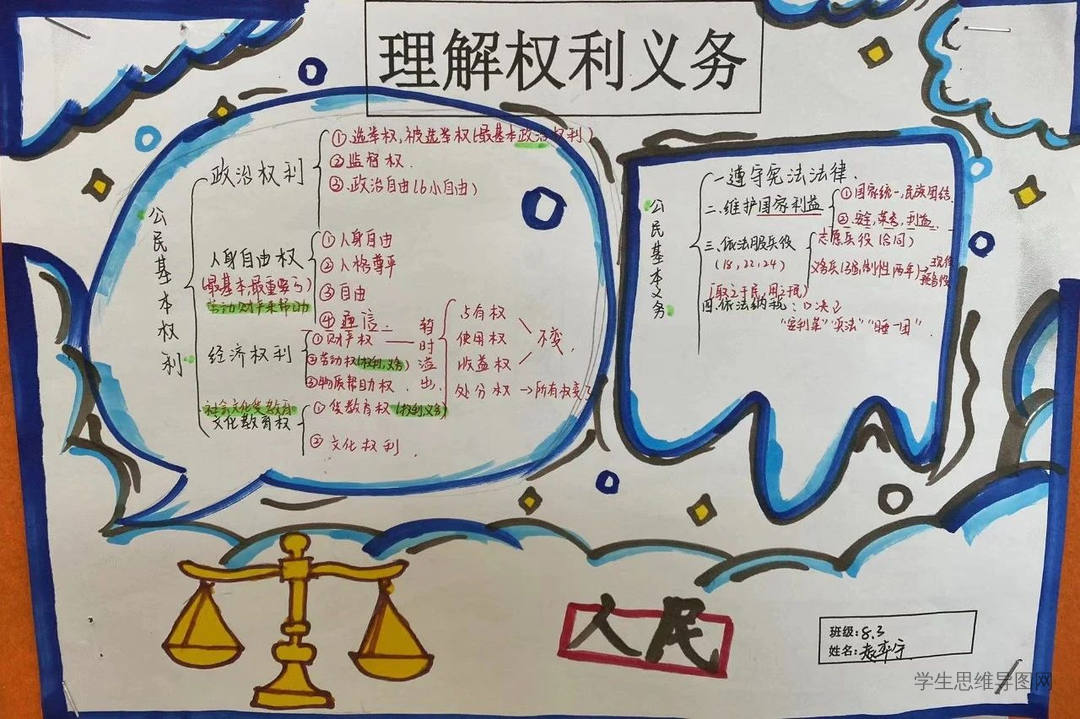 理解权利义务
公民基本权利
政治权利
①选举权,被选举权(最基本政治权利)
②监督权.
③.政治自由(6小自由)
人身自由权
(最基本,最重要)
①人身自由
②人格尊严
③自由
④通信.
经济权利
①财产权
②劳动权(权利,义务)
③物质帮助权.
暂时溢出.
占有权
使用权
收益权
不变.
处分权→所有权变了
社会文化受教育
文化教育权
①受教育权(权利义务)
②文化权利
公民基本义务
一遵守宪法法律.
二.维护国家利益
①国家统一,民族团结.
②.安全,荣誉,利益.
三.依法服兵役
(18,22,24)
志愿兵役(合同)
(取之于民,用之于民)
四.依法纳税:
人民
班级:8.3
姓名:
学生思维导图网